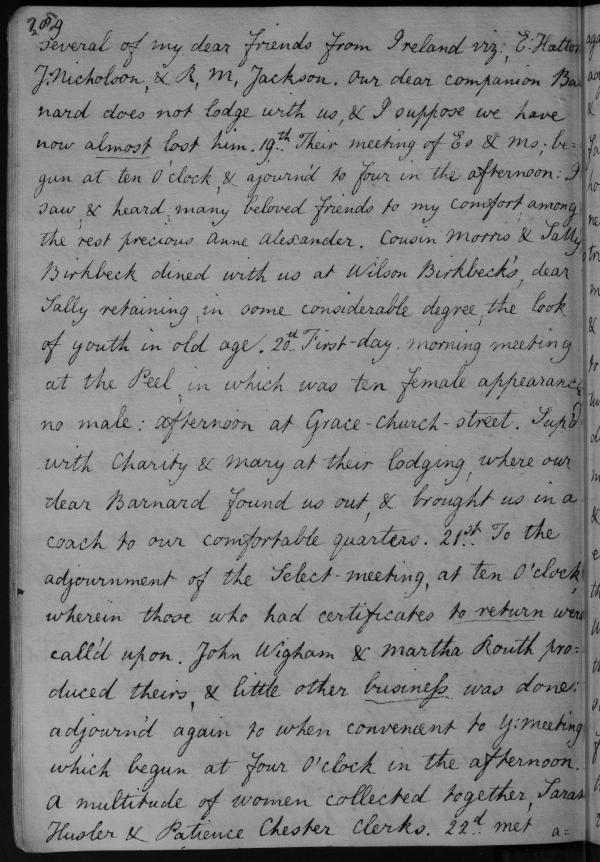 289
several of my dear friends from Ireland viz; E: Hatton
J: Nicholson, & R, M, Jackson. our dear companion Bar
nard does not lodge with us, & I suppose we have
now almost lost him. 19.th Their meeting of Es & Ms; be=
gun at ten O'clock, & ajourn'd to four in the afternoon: I
saw, & heard, many beloved friends to my comfort, among
the rest precious Anne Alexander. Cousin Morris & Sally
Birkbeck dined with us at Wilson Birkbeck's, dear
Sally retaining, in some considerable degree, the look
of youth in old age. 20.th First-day. morning meeting
at the Peel, in which was ten female appearances
no male: afternoon at Grace-church-street. Sup'd
with Charity & Mary at their lodging, where our
dear Barnard found us out, & brought us in a
coach to our comfortable quarters. 21.st To the
adjournment of the Select-meeting, at ten O'clock,
wherein those who had certificates to return were
call'd upon. John Wigham & Martha Routh pro=
duced theirs, & little other business was done:
adjourn'd again to when convenient to Y: meeting
which begun at four O'clock in the afternoon.
A multitude of women collected together, Sarah
Husler & Patience Chester Clerks. 22.d met a=